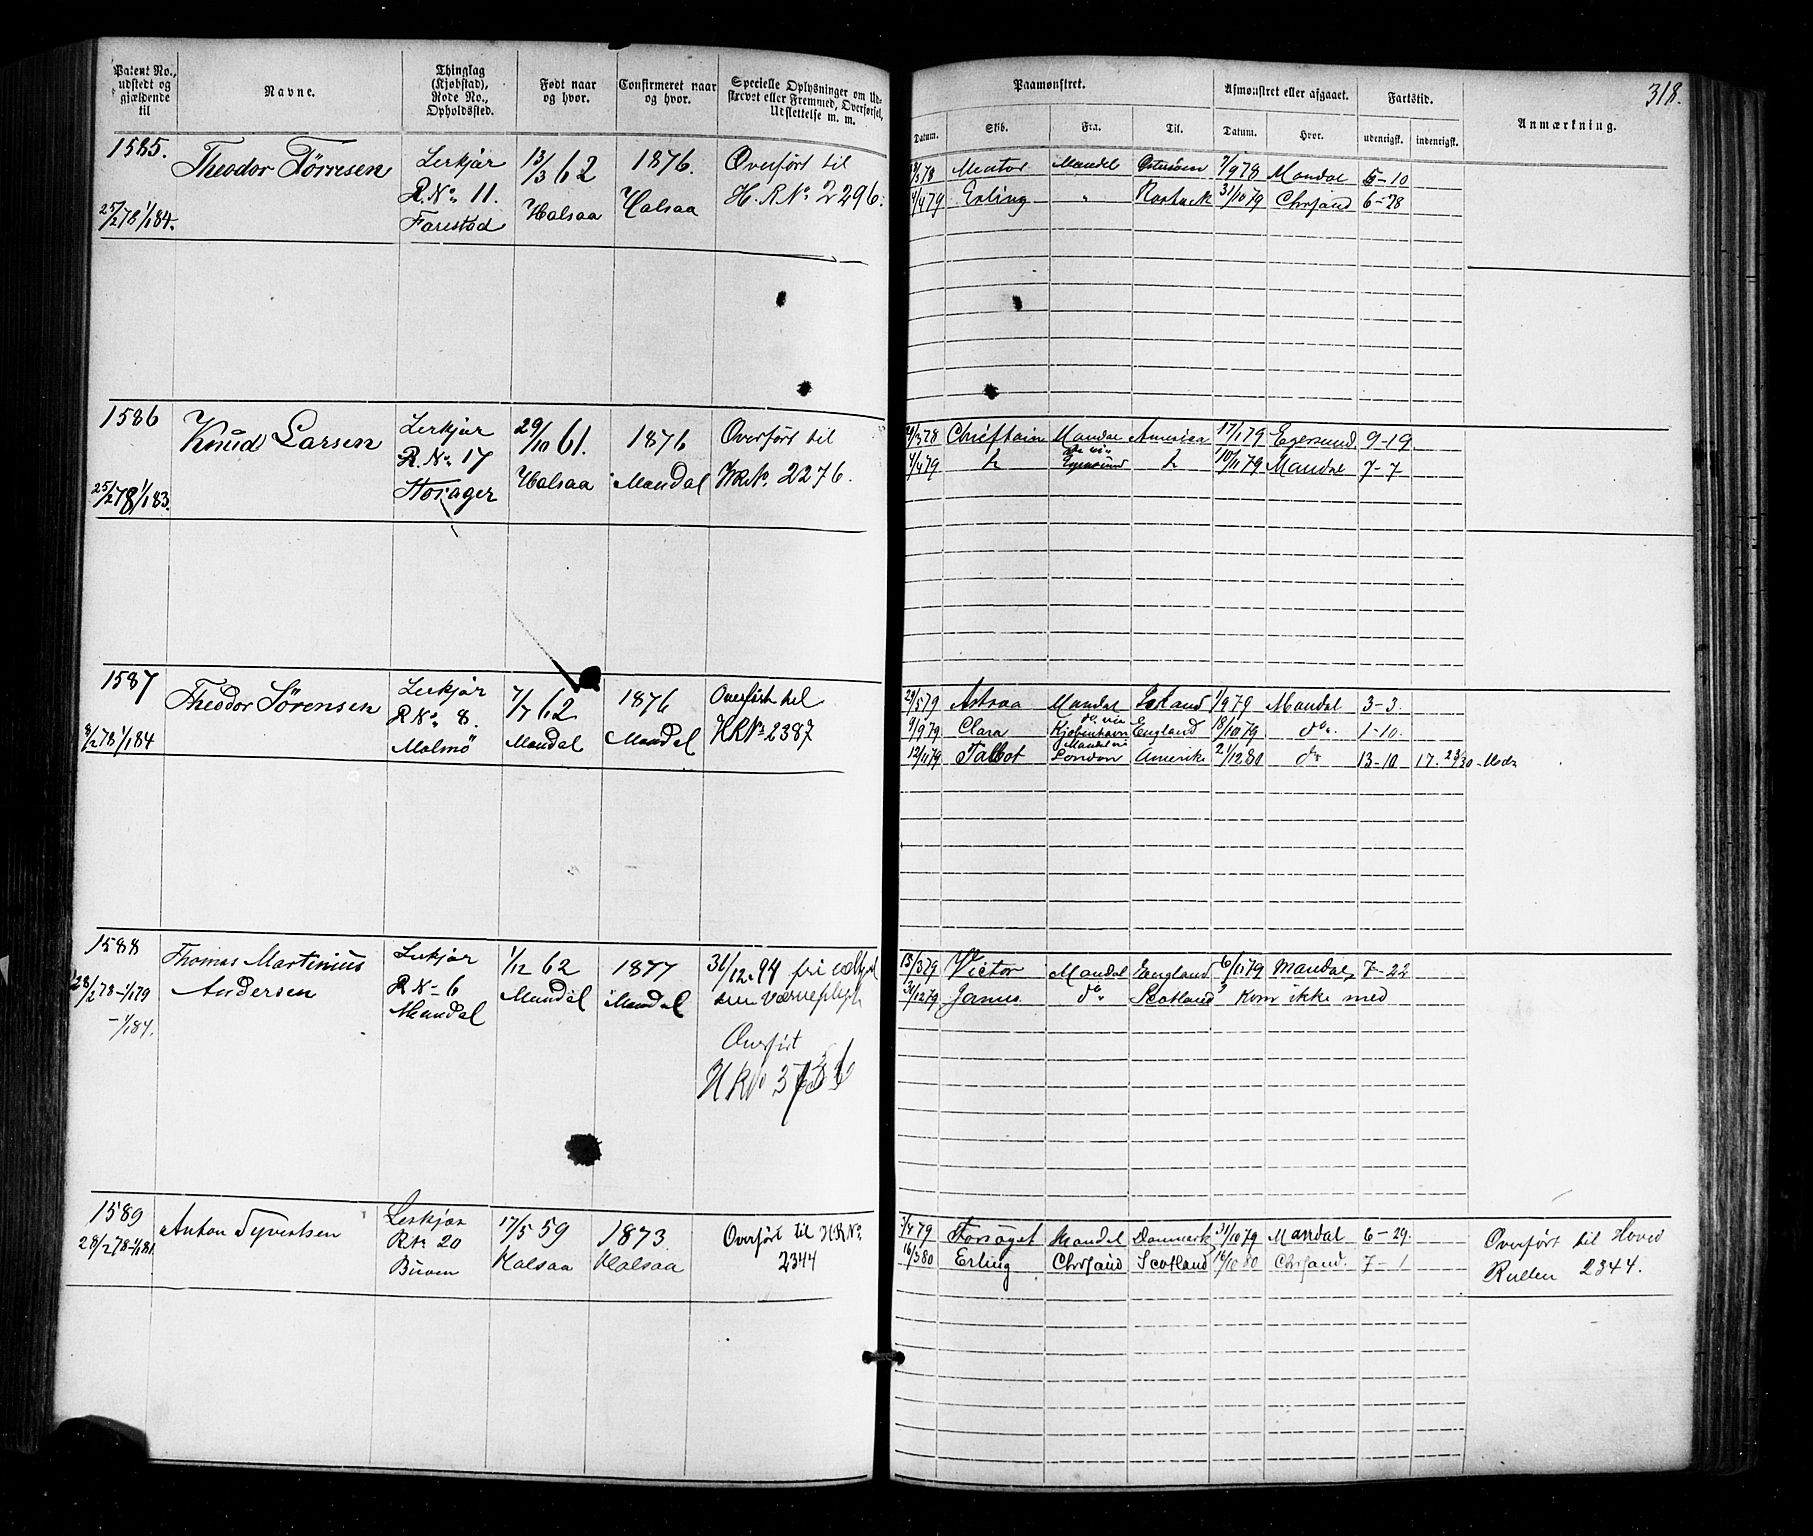 Patent No., udstedt og gjældende til
Navne.
Thinglag (Kjøbstad), Rode No., Opholdssted.
Født naar og hvor.
Confirmeret naar og hvor.
Specielle Oplysninger om Udskrevet eller Fremmed, Overførsel, Udslettelse m. m.
Paamønstret.
Afmønstret eller afgaaet.
Fartstid.
Anmærkning.
318.
Datum. Skib. Fra. Til. Datum. Hvor. udenrigsk. indenrigsk.
1585.
25/2 78 1/1 84.
Theodor Tørresen
Lerkjær
R.No. 11.
Farestad
13/3 62
Halsaa
1876.
Halsaa
Overført til
H.RNo. 2296.
Mentor Mandal 7/9 78 Mandal 5-10
4/4 79 Erling " 31/10 79 Chrsand 6-28
1586
25/2 78 1/1 83.
Knud Larsen
Lerkjær
R.No. 17
Storager
29/10 61.
Halsaa
1876
Mandal
Overført til
HRNo. 2276.
Chieftain Mandal Amerika 17/1 79 Egersund 9-19
4/4 79 Egersund 10/11 79 Mandal 7-7
1587
1/1 84
Theodor Sørensen
Lerkjær
RNo. 8.
Malmø
7/7 62
Mandal
1876
Mandal
Overført til
HRNo 2387
29/5 79 Astræa Mandal 1/9 79 Mandal 3-3.
9/9 79 Clara do. via Kjøbenhavn England 18/10 79 do. 1-10.
12/11 79 Talbot Mandal via London Amerika 21/12 80 do 13-10 17.
1588
28/2 78-1/1 79
-1/1 84.
Thomas Martinius
Andersen
Lerkjær
RNo 6
Mandal
1/12 62
Mandal
1877
Mandal
31/12 94 fri
værnepligt
Overført
HRNo
13/3 79 Victor Mandal England 6/11 79 Mandal 7-22
31/12 79 Janus do Scotland Kom ikke med
1589
28/2 78-1/1 81
Anton Syvertsen
Lerkjær
RNo 20
Buven
17/5 59
Halsaa
1873
Halsaa
Overført til HRNo.
2344
1/4 79 Forsøget Mandal Danmark 31/10 79 Mandal 6-29.
16/3 80 Erling Chrsand Scotland 16/10 80 Chrsand. 7-1
Overført til Hoved
Rullen 2344.